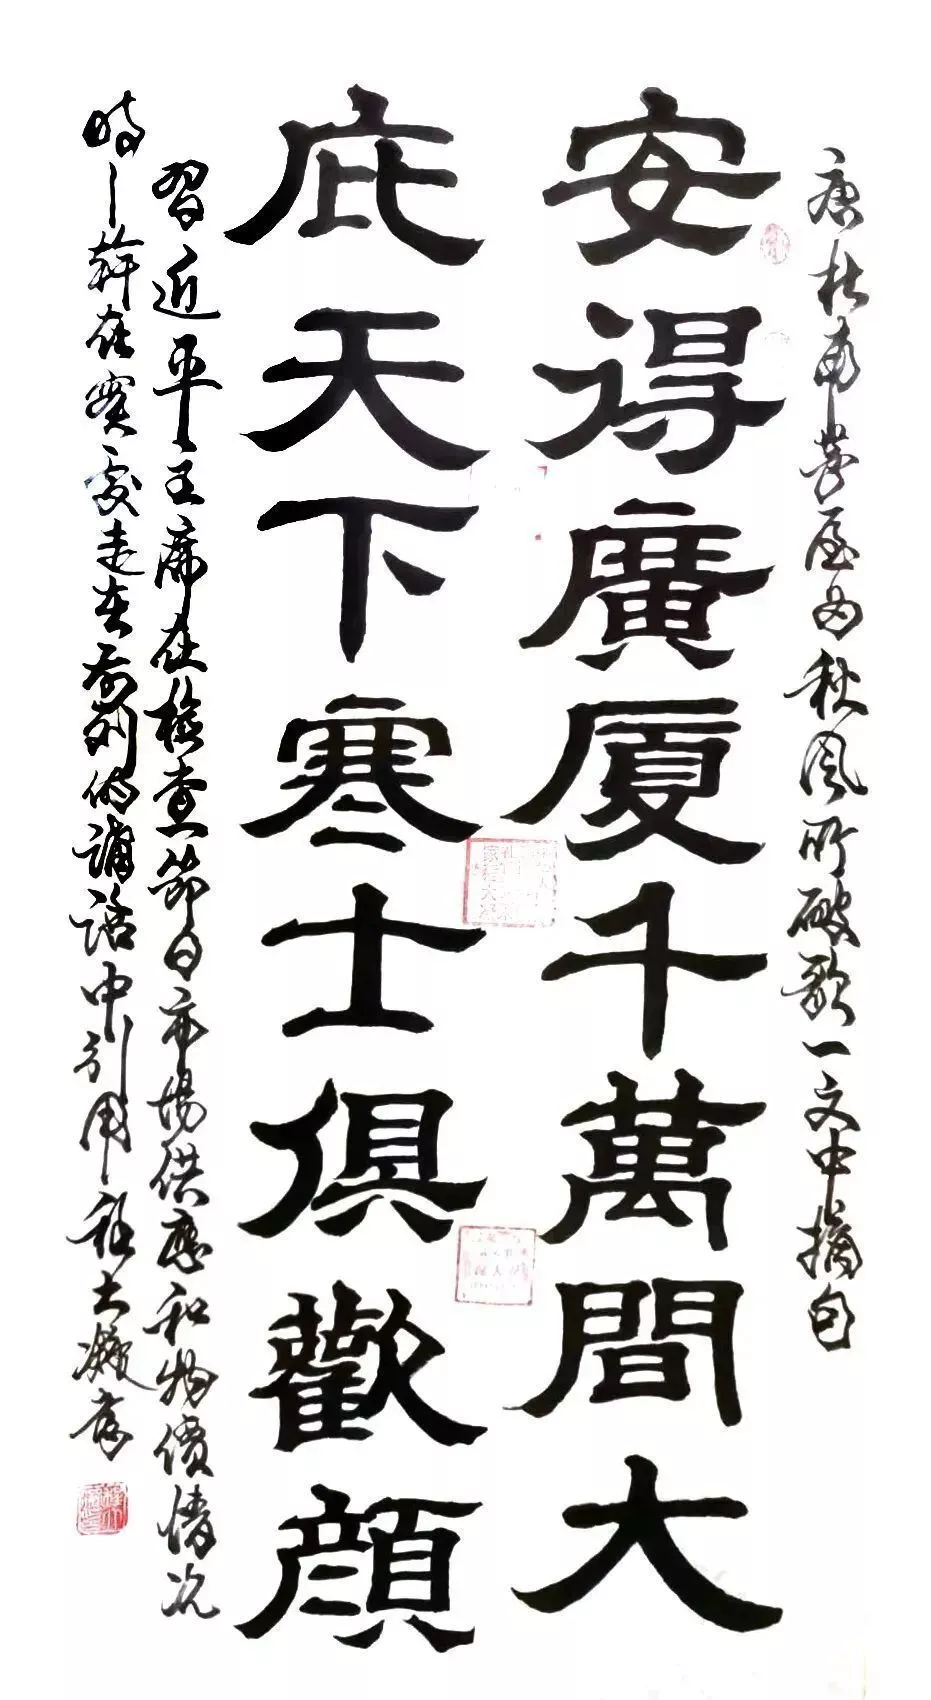 唐杜甫茅屋為秋風所破歌一文中摘句
安得廣厦千萬間大
庇天下寒士俱歡顔
習近平主席在檢查節日市場供應和物價情況
時幹在實處走在前列的講話中引用程大凝書